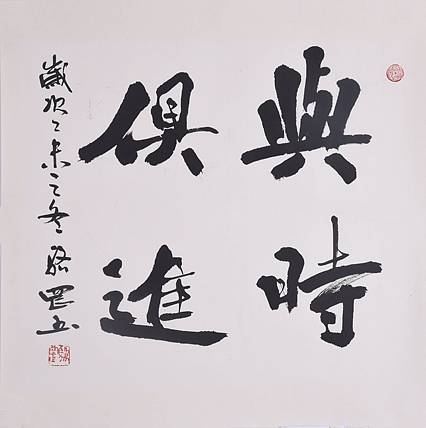 與時
俱進
歲次乙未之冬駱